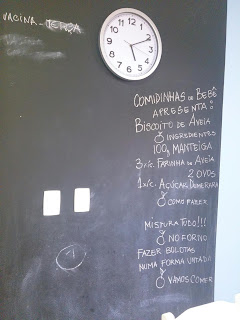 VACINA - TERÇA
COMIDINHAS DE BEBÊ
APRESENTA:
BISCOITO DE AVEIA
INGREDIENTES
100g MANTEIGA
3 xíc. FARINHA DE AVEIA
2 OVOS
1 xíc. AÇÚCAR DEMERARA
COMO FAZER
MISTURA TUDO!!!
NO FORNO
FAZER BOLOTAS
NUMA FORMA UNTADA
VAMOS COMER